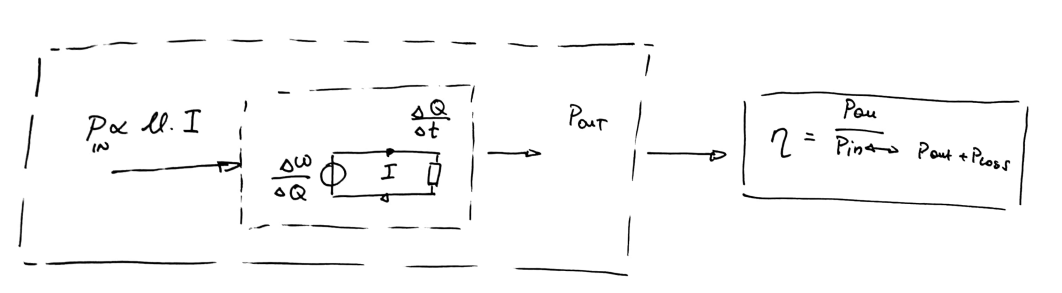 P_IN ∝ U. I
ΔQ/Δt
ΔW/ΔQ
I
P_OUT
η = P_ou/P_in ↔ P_out + P_Loss